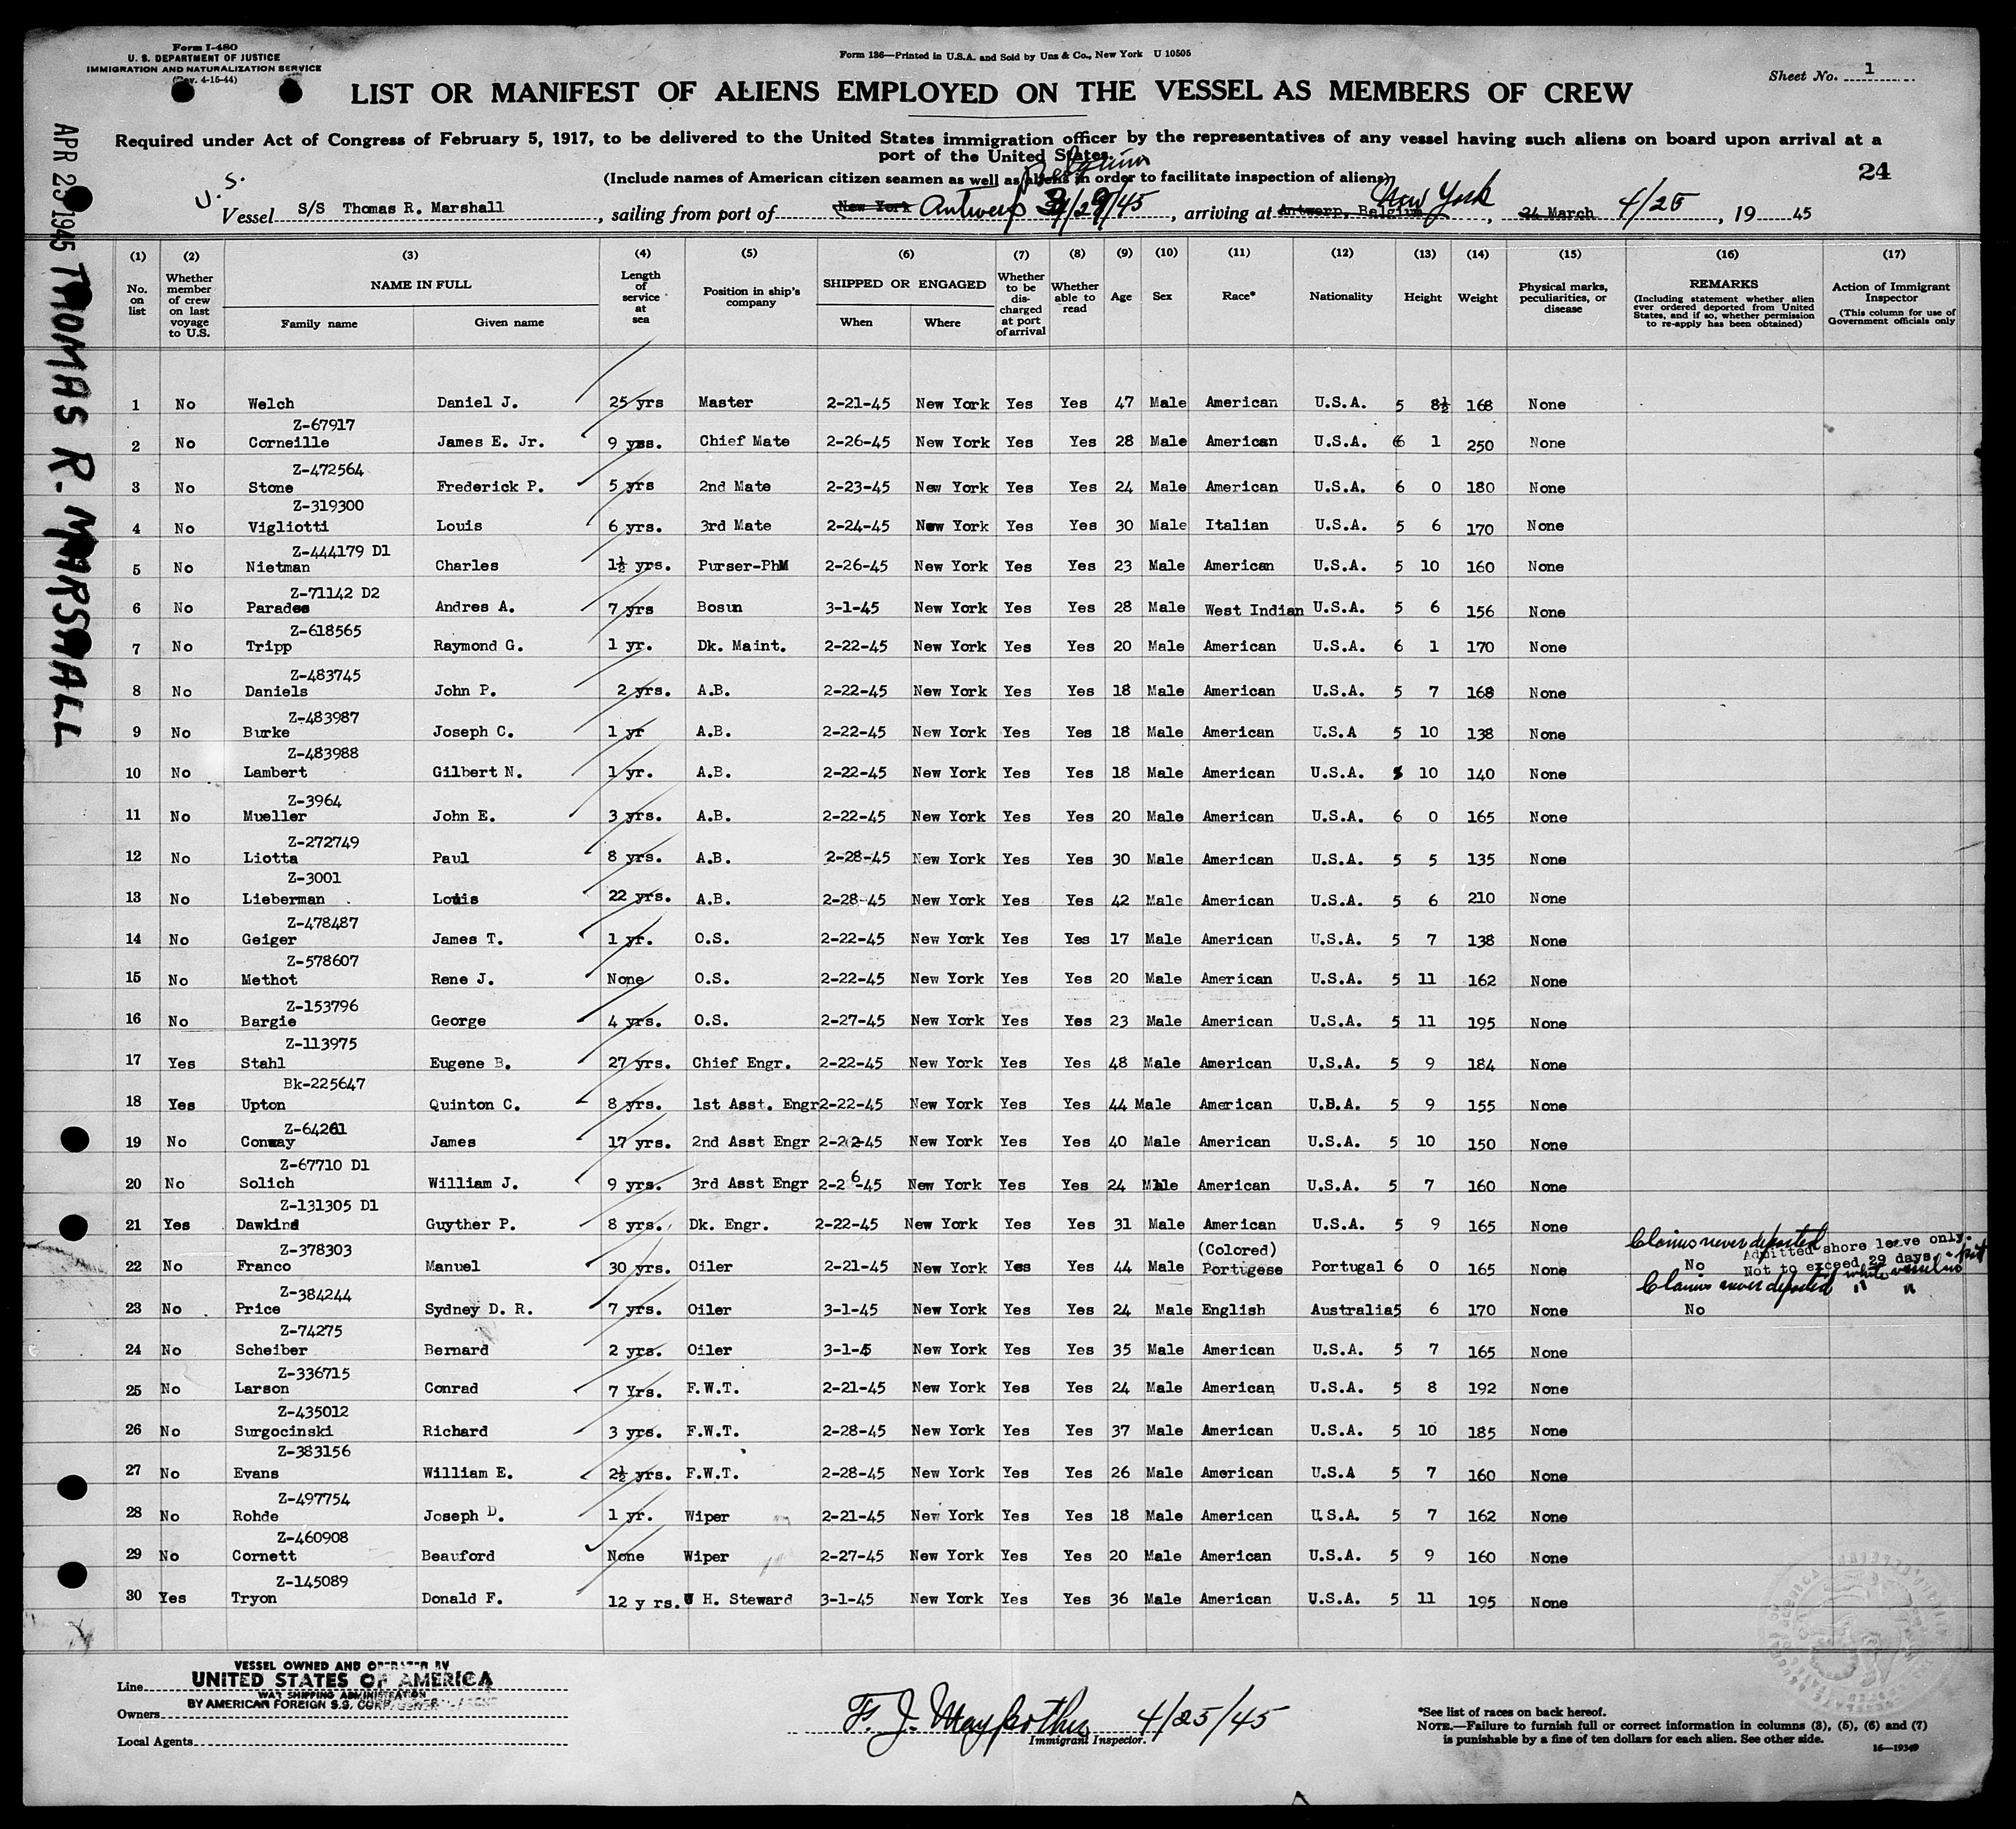 Form I-480
U. S. DEPARTMENT OF JUSTICE
IMMIGRATION AND NATURALIZATION SERVICE
(Rev. 4-15-44)
Form 136—Printed in U.S.A. and Sold by Uns & Co., New York U 10505
Sheet No. 1
LIST OR MANIFEST OF ALIENS EMPLOYED ON THE VESSEL AS MEMBERS OF CREW
Required under Act of Congress of February 5, 1917, to be delivered to the United States immigration officer by the representatives of any vessel having such aliens on board upon arrival at a
port of the United States.
(Include names of American citizen seamen as well as aliens in order to facilitate inspection of aliens)
24
Belgium
U.S.
Vessel S/S Thomas R. Marshall, sailing from port of New York Antwerp 3/29/45, arriving at Antwerp, Belgium New York, 24 March 4/25, 19 45
APR 25 1945
THOMAS R. MARSHALL
(1) (2) (3) (4) (5) (6) (7) (8) (9) (10) (11) (12) (13) (14) (15) (16) (17)
No. on list
Whether member of crew on last voyage to U.S.
NAME IN FULL
Family name
Given name
Length of service at sea
Position in ship's company
SHIPPED OR ENGAGED
When
Where
Whether to be discharged at port of arrival
Whether able to read
Age
Sex
Race*
Nationality
Height
Weight
Physical marks, peculiarities, or disease
REMARKS
(Including statement whether alien ever ordered deported from United States, and if so, whether permission to re-apply has been obtained)
Action of Immigrant Inspector
(This column for use of Government officials only
1 No Welch Daniel J. 25 yrs Master 2-21-45 New York Yes Yes 47 Male American U.S.A. 5 8½ 168 None
Z-67917
2 No Corneille James E. Jr. 9 yrs. Chief Mate 2-26-45 New York Yes Yes 28 Male American U.S.A. 6 1 250 None
Z-472564
3 No Stone Frederick P. 5 yrs 2nd Mate 2-23-45 New York Yes Yes 24 Male American U.S.A. 6 0 180 None
Z-319300
4 No Vigliotti Louis 6 yrs. 3rd Mate 2-24-45 New York Yes Yes 30 Male Italian U.S.A. 5 6 170 None
Z-444179 D1
5 No Nietman Charles 1½ yrs. Purser-PhM 2-26-45 New York Yes Yes 23 Male American U.S.A. 5 10 160 None
Z-71142 D2
6 No Parades Andres A. 7 yrs Bosun 3-1-45 New York Yes Yes 28 Male West Indian U.S.A. 5 6 156 None
Z-618565
7 No Tripp Raymond G. 1 yr. Dk. Maint. 2-22-45 New York Yes Yes 20 Male American U.S.A. 6 1 170 None
Z-483745
8 No Daniels John P. 2 yrs. A.B. 2-22-45 New York Yes Yes 18 Male American U.S.A. 5 7 168 None
Z-483987
9 No Burke Joseph C. 1 yr A.B. 2-22-45 New York Yes Yes 18 Male American U.S.A 5 10 138 None
Z-483988
10 No Lambert Gilbert N. 1 yr. A.B. 2-22-45 New York Yes Yes 18 Male American U.S.A. 5 10 140 None
Z-3964
11 No Mueller John E. 3 yrs. A.B. 2-22-45 New York Yes Yes 20 Male American U.S.A. 6 0 165 None
Z-272749
12 No Liotta Paul 8 yrs. A.B. 2-28-45 New York Yes Yes 30 Male American U.S.A. 5 5 135 None
Z-3001
13 No Lieberman Louis 22 yrs. A.B. 2-28-45 New York Yes Yes 42 Male American U.S.A. 5 6 210 None
Z-478487
14 No Geiger James T. 1 yr. O.S. 2-22-45 New York Yes Yes 17 Male American U.S.A. 5 7 138 None
Z-578607
15 No Methot Rene J. None O.S. 2-22-45 New York Yes Yes 20 Male American U.S.A. 5 11 162 None
Z-153796
16 No Bargie George 4 yrs. O.S. 2-27-45 New York Yes Yes 23 Male American U.S.A. 5 11 195 None
Z-113975
17 Yes Stahl Eugene B. 27 yrs. Chief Engr. 2-22-45 New York Yes Yes 48 Male American U.S.A. 5 9 184 None
Bk-225647
18 Yes Upton Quinton C. 8 yrs. 1st Asst. Engr 2-22-45 New York Yes Yes 44 Male American U.S.A. 5 9 155 None
Z-64261
19 No Conway James 17 yrs. 2nd Asst Engr 2-22-45 New York Yes Yes 40 Male American U.S.A. 5 10 150 None
Z-67710 D1
20 No Solich William J. 9 yrs. 3rd Asst Engr 2-26-45 New York Yes Yes 24 Male American U.S.A. 5 7 160 None
Z-131305 D1
21 Yes Dawkins Guyther P. 8 yrs. Dk. Engr. 2-22-45 New York Yes Yes 31 Male American U.S.A. 5 9 165 None
(Colored)
Claims never deported
Admitted shore leave only.
Z-378303
22 No Franco Manuel 30 yrs. Oiler 2-21-45 New York Yes Yes 44 Male Portugese Portugal 6 0 165 None No Not to exceed 29 days, while vessel in port
Claims never deported " "
Z-384244
23 No Price Sydney D. R. 7 yrs. Oiler 3-1-45 New York Yes Yes 24 Male English Australia 5 6 170 None No
Z-74275
24 No Scheiber Bernard 2 yrs. Oiler 3-1-45 New York Yes Yes 35 Male American U.S.A. 5 7 165 None
Z-336715
25 No Larson Conrad 7 Yrs. F.W.T. 2-21-45 New York Yes Yes 24 Male American U.S.A. 5 8 192 None
Z-435012
26 No Surgocinski Richard 3 yrs. F.W.T. 2-28-45 New York Yes Yes 37 Male American U.S.A 5 10 185 None
Z-383156
27 No Evans William E. 2½ yrs. F.W.T. 2-28-45 New York Yes Yes 26 Male American U.S.A 5 7 160 None
Z-497754
28 No Rohde Joseph D. 1 yr. Wiper 2-21-45 New York Yes Yes 18 Male American U.S.A. 5 7 162 None
Z-460908
29 No Cornett Beauford None Wiper 2-27-45 New York Yes Yes 20 Male American U.S.A. 5 9 160 None
Z-145089
30 Yes Tryon Donald F. 12 yrs. H. Steward 3-1-45 New York Yes Yes 36 Male American U.S.A. 5 11 195 None
VESSEL OWNED AND OPERATED BY
Line UNITED STATES OF AMERICA
WAR SHIPPING ADMINISTRATION
BY AMERICAN FOREIGN S.S. CORP. GENERAL AGENT
Owners
Local Agents
F. J. Mayforthy 4/25/45
Immigrant Inspector.
*See list of races on back hereof.
NOTE.—Failure to furnish full or correct information in columns (3), (5), (6) and (7)
is punishable by a fine of ten dollars for each alien. See other side.
16—19349